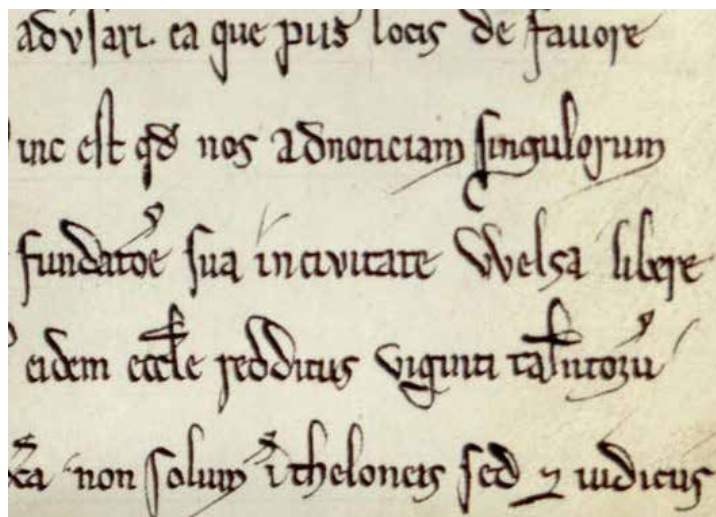 advsari. ea que piis locis de fauore
inc est qd nos adnoticiam singulorum
fundatoe sua in civitate Welsa libere
eidem eccle redditus viginti talntorum
non solum i theloneis sed ⁊ iudiciis